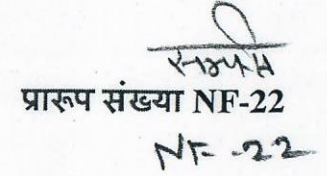 प्रारूप संख्या NF-22
NF-22